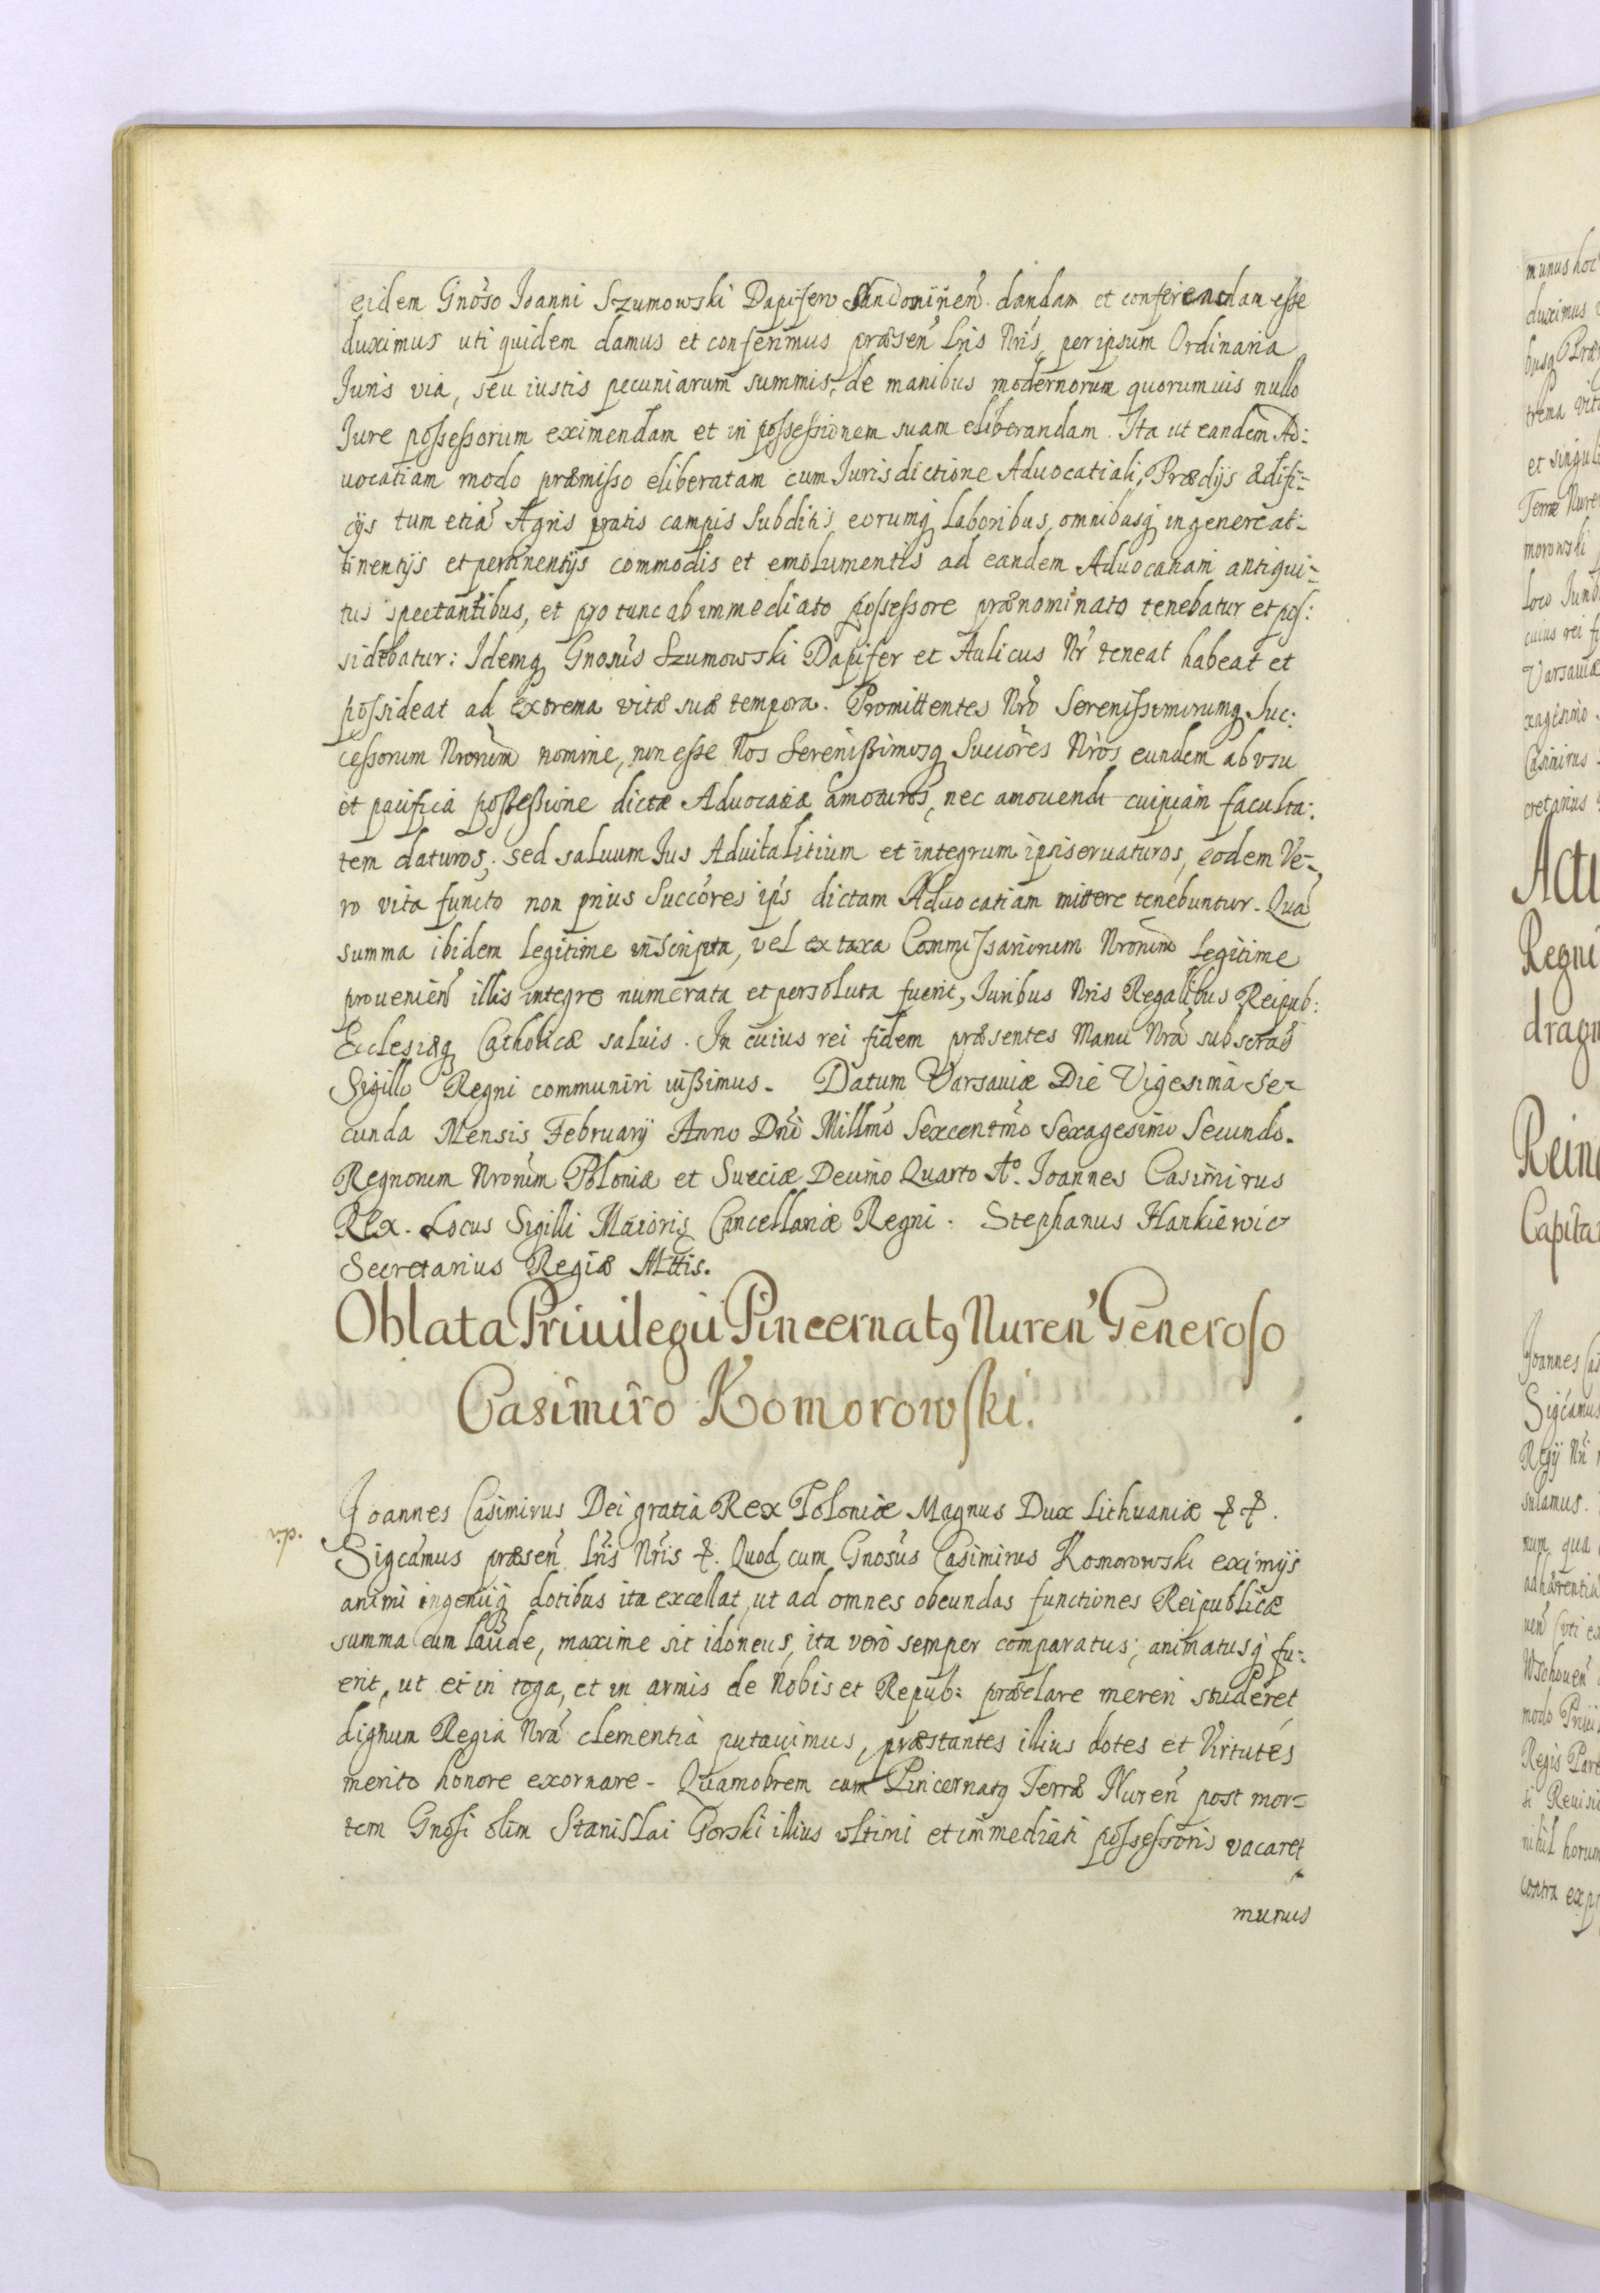 eidem Gnoso Joanni Szumowski Dapifero Sandomiren. dandam et conferendam esse
duximus uti quidem damus et conferimus præsen Lris Nris, per ipsum Ordinaria
Juris via, seu iustis pecuniarum summis, de manibus modernorum quorumuis nullo
Jure possessorum eximendam et in possessionem suam eliberandam. Ita ut eandem Ad:
uocatiam modo præmisso eliberatam cum Jurisdictione Aduocatiali, Prædijs ædifi=
cijs tum etia Agris pratis campis Subditis eorumq laboribus, omnibusq in genere at=
tinentijs et pertinentijs commodis et emolumentis ad eandem Aduocatiam antiqui=
tus spectantibus, et pro tunc ab immediato possessore prænominato tenebatur et pos:
sidebatur: Idemq Gnosus Szumowski Dapifer et Aulicus Nr teneat habeat et
possideat ad extrema vitæ suæ tempora. Promittentes Nro Serenissimorumq Suc:
cessorum Nrorum nomine, non esse Nos Serenissimosq Succores Nros eundem ab vsu
et pacifica possessione dictæ Aduocatiæ amoturos, nec amouendi cuipiam faculta:
tem daturos, sed saluum Jus Aduitalitium et integrum ipsi seruaturos, eodem Ve=
ro vita functo non prius Succores ips dictam Aduocatiam mittere tenebuntur. Qua
summa ibidem legitime inscripta, vel ex taxa Commissariorum Nrorum legitime
prouenien illis integre numerata et persoluta fuerit, Juribus Nris Regalibus Reipub:
Ecclesiæq Catholicæ saluis. In cuius rei fidem præsentes Manu Nra subscras
Sigillo Regni communiri iussimus. Datum Varsauiæ Die Vigesima Se=
cunda Mensis Februarij Anno Dni Millmo Sexcentmo Sexagesimo Secundo.
Regnorum Nrorum Poloniæ et Sueciæ Decimo Quarto Ao. Joannes Casimirus
Rex. Locus Sigilli Maioris Cancellariæ Regni. Stephanus Hankiewic
Secretarius Regiæ Mttis.
Oblata Priuilegii Pincernatq Nuren Generoso
Casimiro Komorowski.
Joannes Casimirus Dei gratia Rex Poloniæ Magnus Dux Lithuaniæ & &.
v.p.
Sigcamus præsen Lris Nris &. Quod cum Gnosus Casimirus Komorowski eximijs
animi ingeniiq dotibus ita excellat, ut ad omnes obeundas functiones Reipublicæ
summa cum laude, maxime sit idoneus, ita vero semper comparatus, animatusq fu=
erit, ut et in toga, et in armis de Nobis et Repub: præclare mereri studeret,
dignum Regia Nra clementia putauimus, præstantes illius dotes et Virtutes
merito honore exornare. Quamobrem cum Pincernatq Terræ Nuren post mor=
tem Gnosi olim Stanislai Gorski illius vltimi et immediati possessoris vacaret
munus